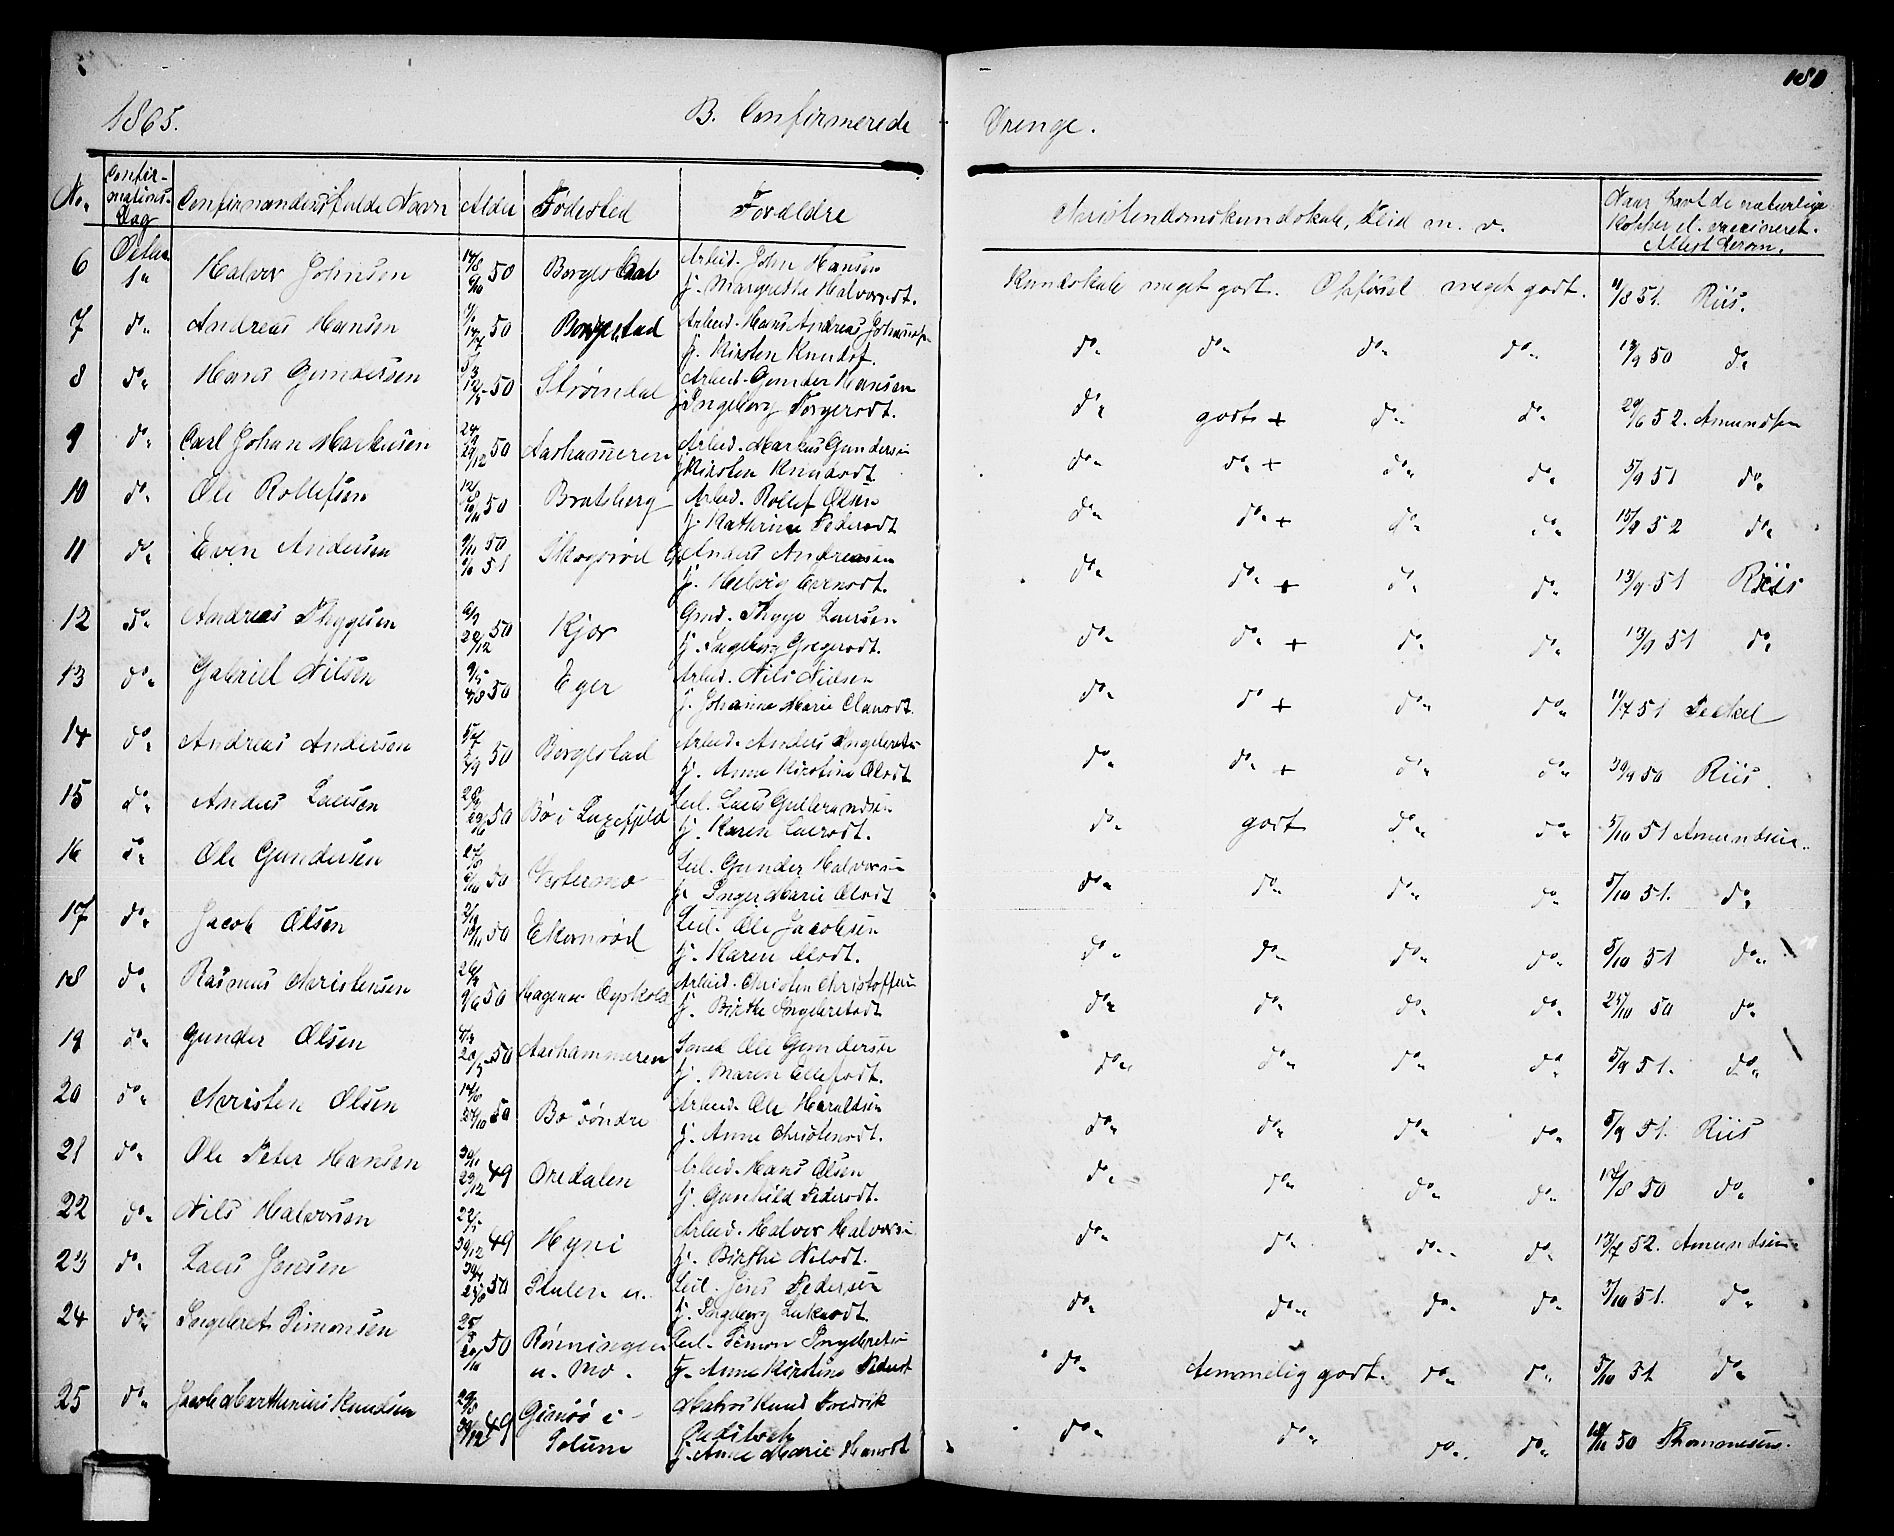 180
1865. B. Confirmerede Drenge.
No. Confir-mations-Dag Confirmandens fulde Navn Alder Fødested Forældre Christendomskundskab, Flid m. v. Naar havt de naturlige Kopper el. vaccineret. Mest derom.
6 Halvor Johnsen 14/8 50 Borgestad Arbeid. John Hansen
G. Margrethe Halvorsdt. Kundskab meget godt. Opførsel meget godt. 11/8 51. Riis.
7 do. Andreas Hansen 50 Borgestad Arbeid. Hans Andreas Johannesen
G. Kirsten Knudsd. do. do. do. do. 13/9 50 do.
8 do. Hans Gundersen 12/5 50 Strømdal Arbeid. Gunder Hansen
G. Ingeborg Torgersdt. do. godt + do. do. 29/6 52. Amundsen
9 do. Carl Johan Markusen 29/12 50 Aashammeren Arbeid. Markus Gundersen
G. Kirsten Knudsdt do. do. + do. do. 5/9 51 do.
10 do. Ole Rollefsen 50 Bratsberg Arbeid. Rollef Olsen
G. Kathrine Pedersdt do. do. + do. do. 15/9 52 do.
11 do. Even Andersen 50 51 Skogsrød Anders Andreasen
G. Helvig Evensdt. do. do. + do. do. 13/9 51 Riis
12 do. Andreas Thygesen 22/12 50 Kjær Gmd. Thyge Larsen
G. Ingeborg Gregersdt. do. do. + do. do. 13/9 51 do.
13 do. Gabriel Nilsen 9/5 50 Eger Arbeid. Nils Nielsen
G. Johanne Marie Olausdt. do. do. + do. do. 11/7 51
14 do. Andreas Andersen 50 Borgestad Arbeid. Anders Ingebretsen
G. Anne Kirstine Olsdt do. do. + do. do. 30/9 50 Riis.
15 do. Anders Larsen 50 Bø i Luxefjeld Leil. Lars Gulbrandsen
G. Karen Larsdt. do. godt do. do. 5/10 51 Amundsen
16 do. Ole Gundersen 50 Vestermo Leil. Gunder Halvorsen
G. Inger Marie Olsdt do. do. do. do. 5/10 51. do.
17 do. Jacob Olsen 50 Ekornrød Leil. Ole Jacobsen
G. Karen Olsdt. do. do. do. do. 5/10 51 do.
18 do. Rasmus Christensen 9/6 50 Arbeid. Christen Christoffersen
G. Birthe Ingebretsdt do. do. do. do. 25/10 50 do.
19 do. Gunder Olsen 20/5 50 Aashammeren Smed Ole Gundersen
G. Maren Ellefsdt. do. do. do. do. 5/9 51. do.
20 do. Christen Olsen 27/10 50 Bø Søndre Arbeid. Ole Haraldsen
G. Anne Christensdt. do. do. do. do. 5/9 51. Riis
21 do. Ole Peter Hansen 30/11 23/12 49 Oredalen Arbeid. Hans Olsen
G. Gunhild Pedersdt. do. do. do. do. 12/8 50 do.
22 do. Nils Halvorsen 30/12 49 Hyni Arbeid. Halvor Halvorsen
G. Birthe Nilsdt. do. do. do. do. 13/7 52. Amundsen
23 do. Lars Jensen 50 Leil. Jens Pedersen
G. Ingeborg Larsdt. do. do. do. do. 5/10 51. do.
24 do. Ingebret Simonsen 50 Rønningen
u. Mo. Leil. Simon Ingebretsen
G. Anne Kirstine Pedersdt do. temmelig godt. do. do. 5/10 51 do.
25 do. Jacob Marthinius Knudsen 30/12 49 Gimsø i
Solum Matros Knud Fredrik
G. Anne Marie Hansdt do. do. do. do. 50 Thommesen.